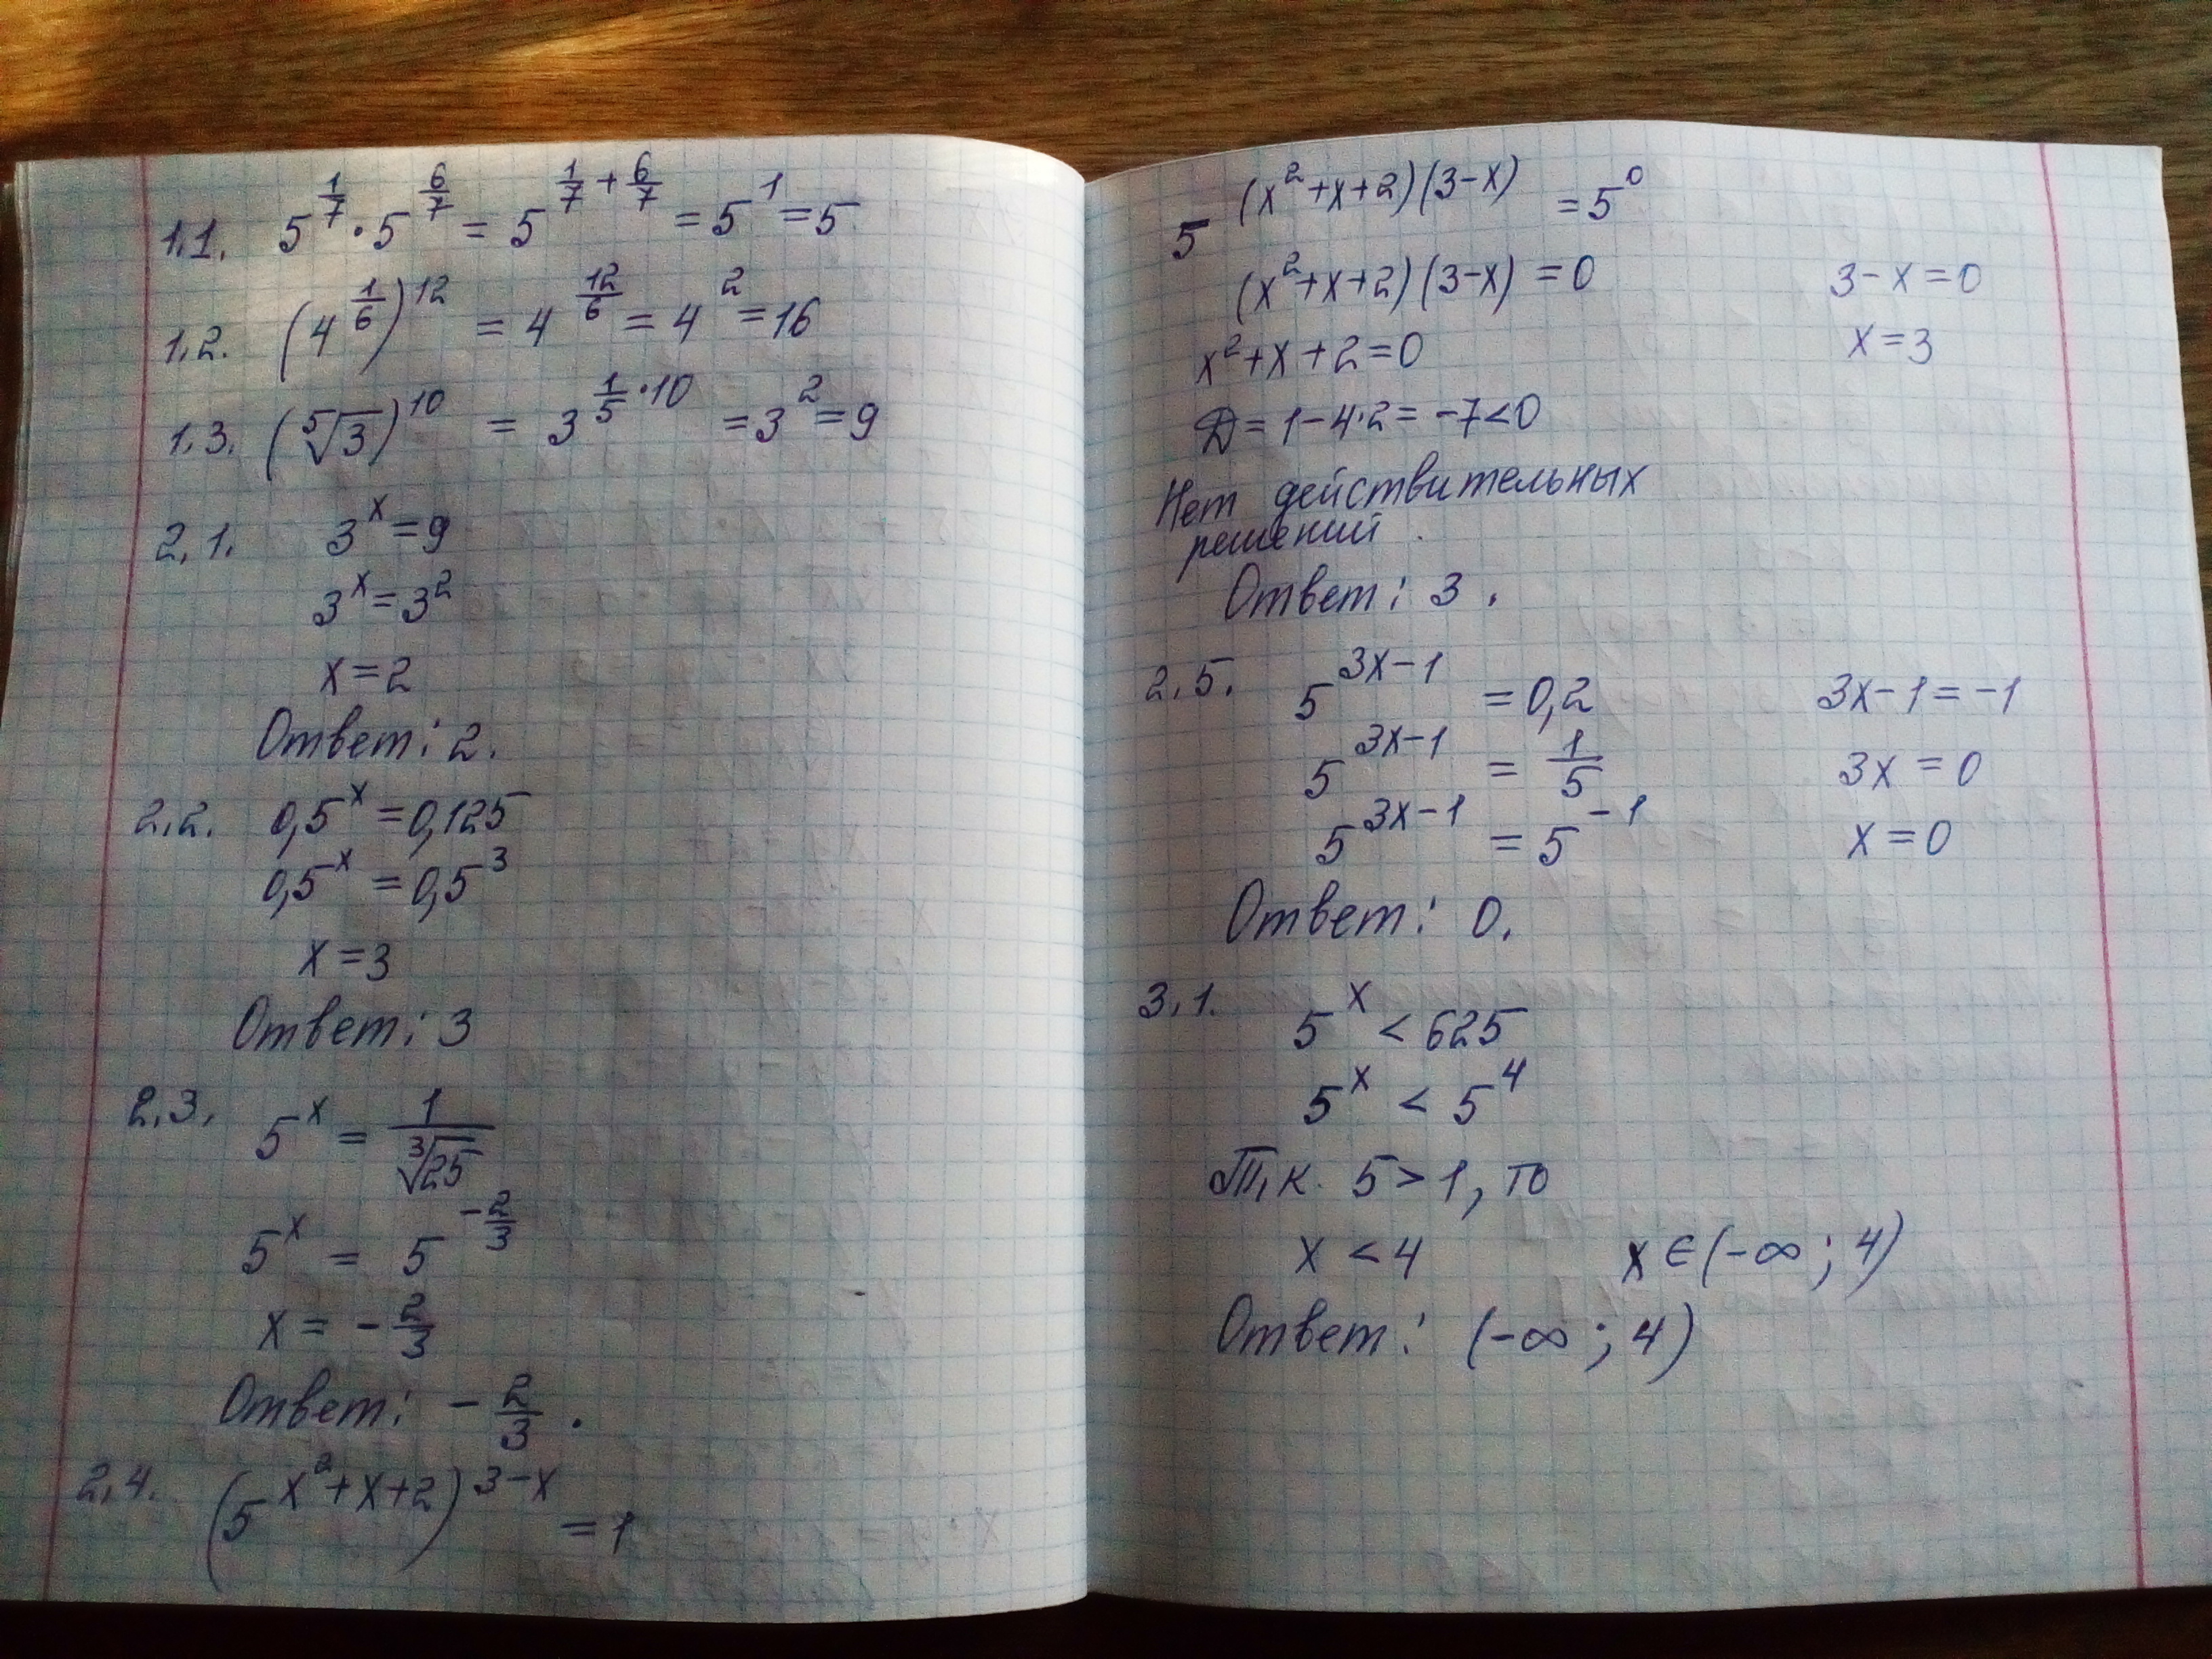 1.1. 5^(1/7) · 5^(6/7) = 5^(1/7 + 6/7) = 5^1 = 5
1.2. (4^(1/6))^12 = 4^(12/6) = 4^2 = 16
1.3. (⁵√3)^10 = 3^(1/5 · 10) = 3^2 = 9
2.1. 3^x = 9
3^x = 3^2
x = 2
Ответ: 2.
2.2. 0,5^x = 0,125
0,5^x = 0,5^3
x = 3
Ответ: 3
2.3. 5^x = 1/∛25
5^x = 5^(-2/3)
x = -2/3
Ответ: -2/3.
2.4. (5^(x²+x+2))^(3-x) = 1
5^((x²+x+2)(3-x)) = 5^0
(x²+x+2)(3-x) = 0
x²+x+2=0
D = 1-4·2 = -7<0
Нет действительных
решений.
3-x=0
x=3
Ответ: 3.
2.5. 5^(3x-1) = 0,2
5^(3x-1) = 1/5
5^(3x-1) = 5^(-1)
3x-1=-1
3x=0
x=0
Ответ: 0.
3.1. 5^x < 625
5^x < 5^4
Т.к. 5>1, то
x < 4 x ∈ (-∞; 4)
Ответ: (-∞; 4)